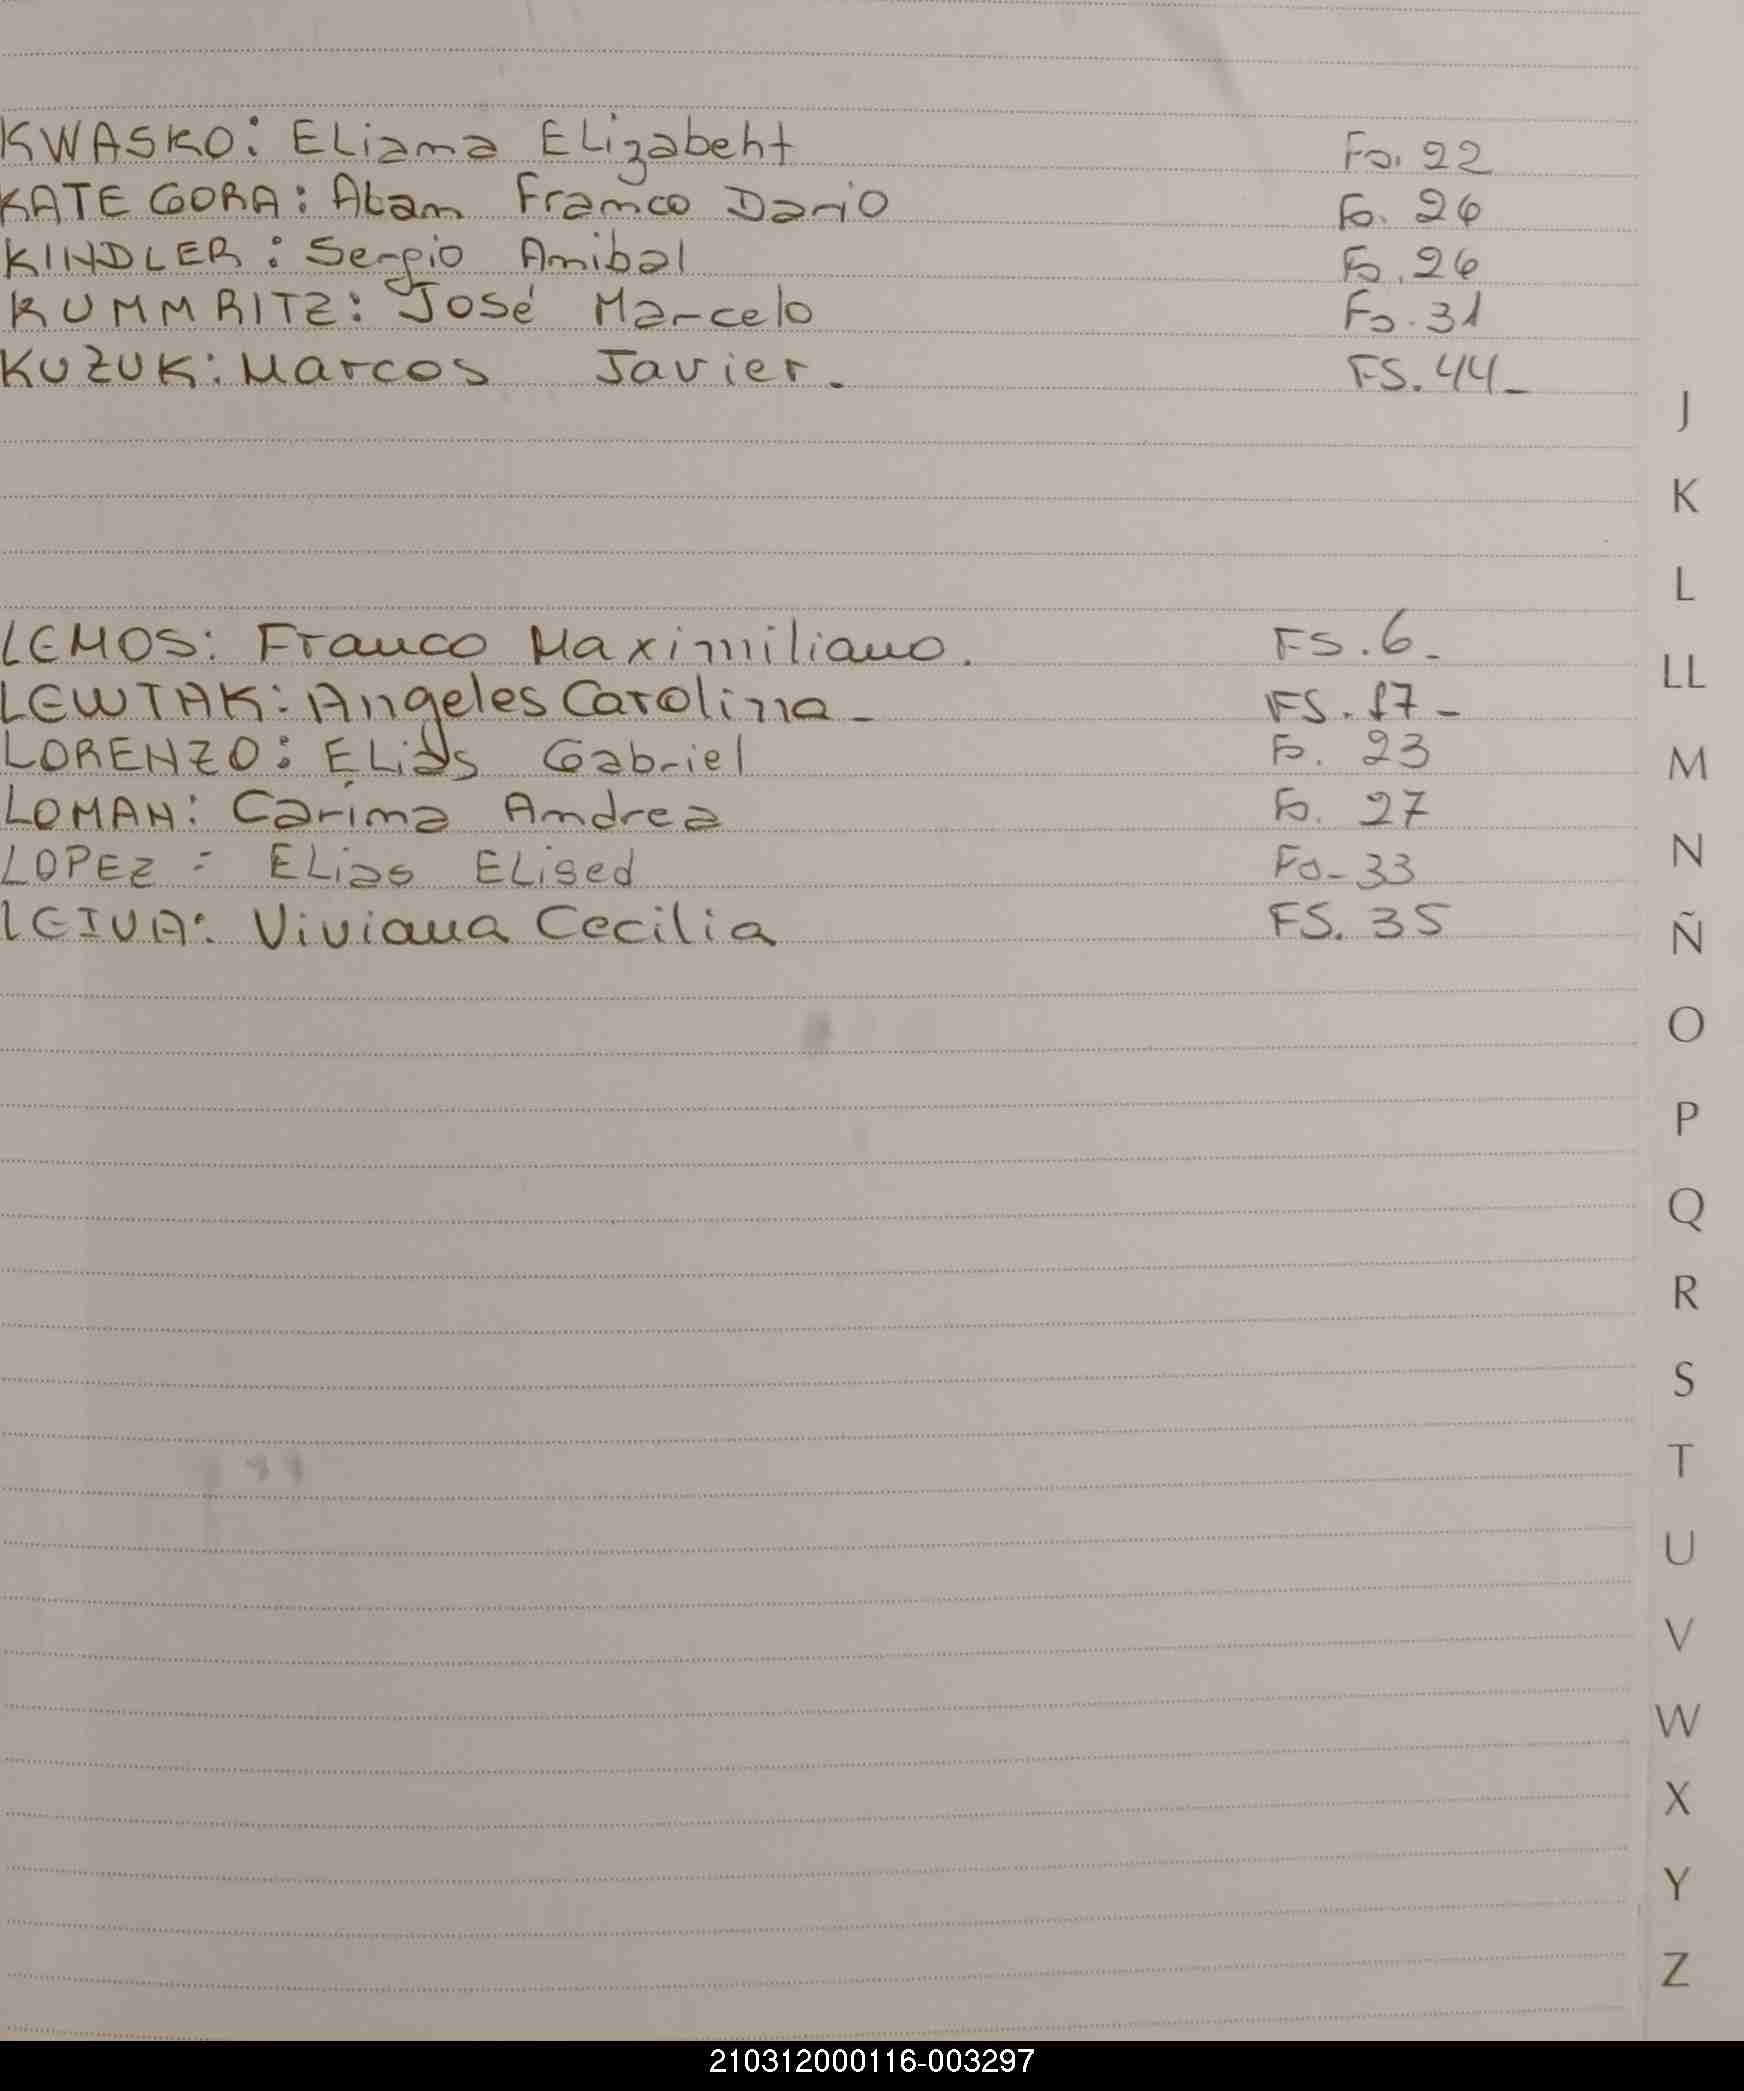 KWASKO: ELiana ELizabeht Fs. 22
KATEGORA: Alan Franco Dario Fs. 26
KINDLER: Sergio Anibal Fs. 26
KUMMRITZ: José Marcelo Fs. 31
KUZUK: Marcos Javier. FS. 44_
J
K
L
LEMOS: Franco Maximiliano. FS. 6_
LL
LEWTAK: Angeles Carolina_ FS. 17_
LORENZO: ELias Gabriel Fs. 23
M
LOMAN: Carina Andrea Fs. 27
N
LOPEZ = ELias ELised Fs_ 33
LEIVA: Viviana Cecilia FS. 35
Ñ
O
P
Q
R
S
T
U
V
W
X
Y
Z
210312000116-003297